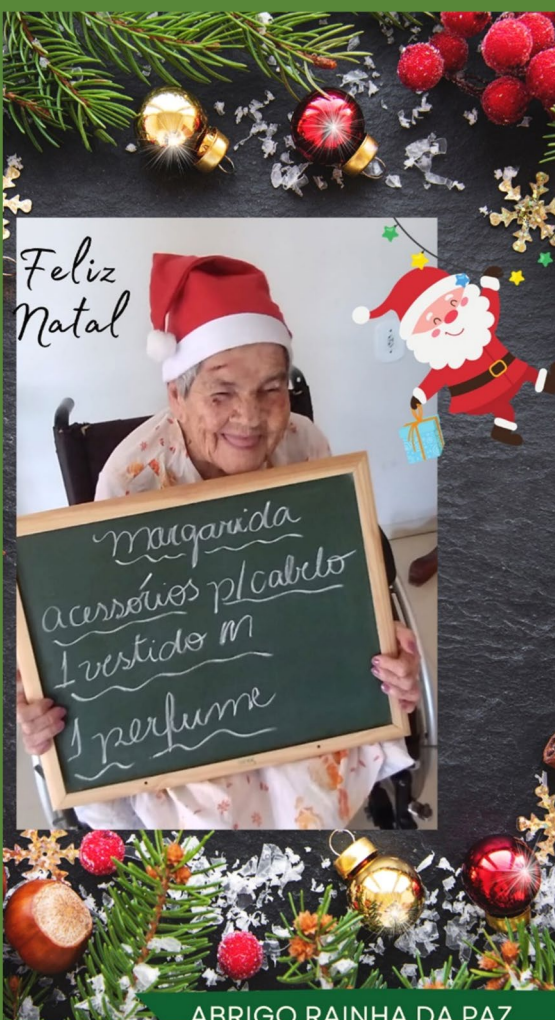 Feliz
Natal
Margarida
acessórios p/cabelo
1 vestido M
1 perfume
ABRIGO RAINHA DA PAZ